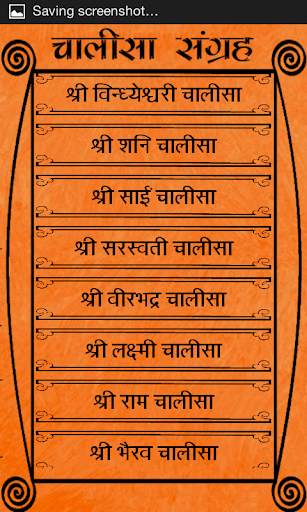 Saving screenshot...
चालीसा संग्रह
श्री विन्ध्येश्वरी चालीसा
श्री शनि चालीसा
श्री साईं चालीसा
श्री सरस्वती चालीसा
श्री वीरभद्र चालीसा
श्री लक्ष्मी चालीसा
श्री राम चालीसा
श्री भैरव चालीसा